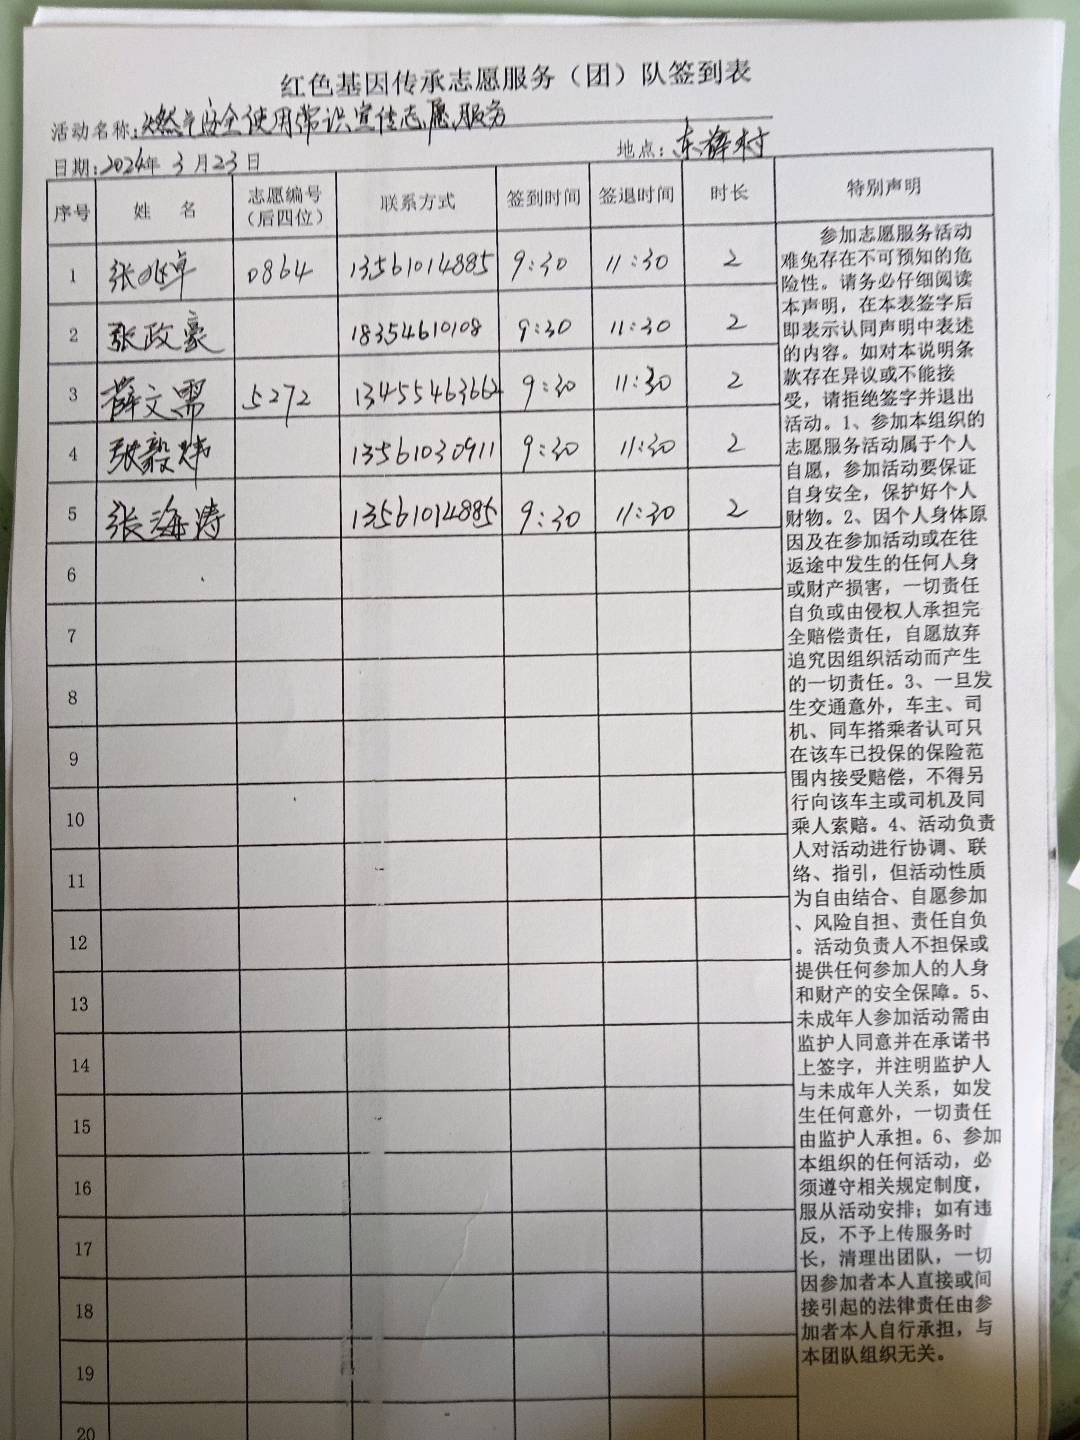 红色基因传承志愿服务（团）队签到表
活动名称:燃气安全使用常识宣传志愿服务
日期:2024年 3月23日 地点:东薛村
序号 姓 名 志愿编号（后四位） 联系方式 签到时间 签退时间 时长 特别声明
1 张兆卓 0864 13561014885 9:30 11:30 2
2 张政豪 18354610108 9:30 11:30 2
3 薛文需 5272 13455463662 9:30 11:30 2
4 张毅炜 13561030911 9:30 11:30 2
5 张海涛 13561014885 9:30 11:30 2
6
7
8
9
10
11
12
13
14
15
16
17
18
19
20
参加志愿服务活动
难免存在不可预知的危
险性。请务必仔细阅读
本声明，在本表签字后
即表示认同声明中表述
的内容。如对本说明条
款存在异议或不能接
受，请拒绝签字并退出
活动。1、参加本组织的
志愿服务活动属于个人
自愿，参加活动要保证
自身安全，保护好个人
财物。2、因个人身体原
因及在参加活动或在往
返途中发生的任何人身
或财产损害，一切责任
自负或由侵权人承担完
全赔偿责任，自愿放弃
追究因组织活动而产生
的一切责任。3、一旦发
生交通意外，车主、司
机、同车搭乘者认可只
在该车已投保的保险范
围内接受赔偿，不得另
行向该车主或司机及同
乘人索赔。4、活动负责
人对活动进行协调、联
络、指引，但活动性质
为自由结合、自愿参加
、风险自担、责任自负
。活动负责人不担保或
提供任何参加人的人身
和财产的安全保障。5、
未成年人参加活动需由
监护人同意并在承诺书
上签字，并注明监护人
与未成年人关系，如发
生任何意外，一切责任
由监护人承担。6、参加
本组织的任何活动，必
须遵守相关规定制度，
服从活动安排；如有违
反，不予上传服务时
长，清理出团队，一切
因参加者本人直接或间
接引起的法律责任由参
加者本人自行承担，与
本团队组织无关。